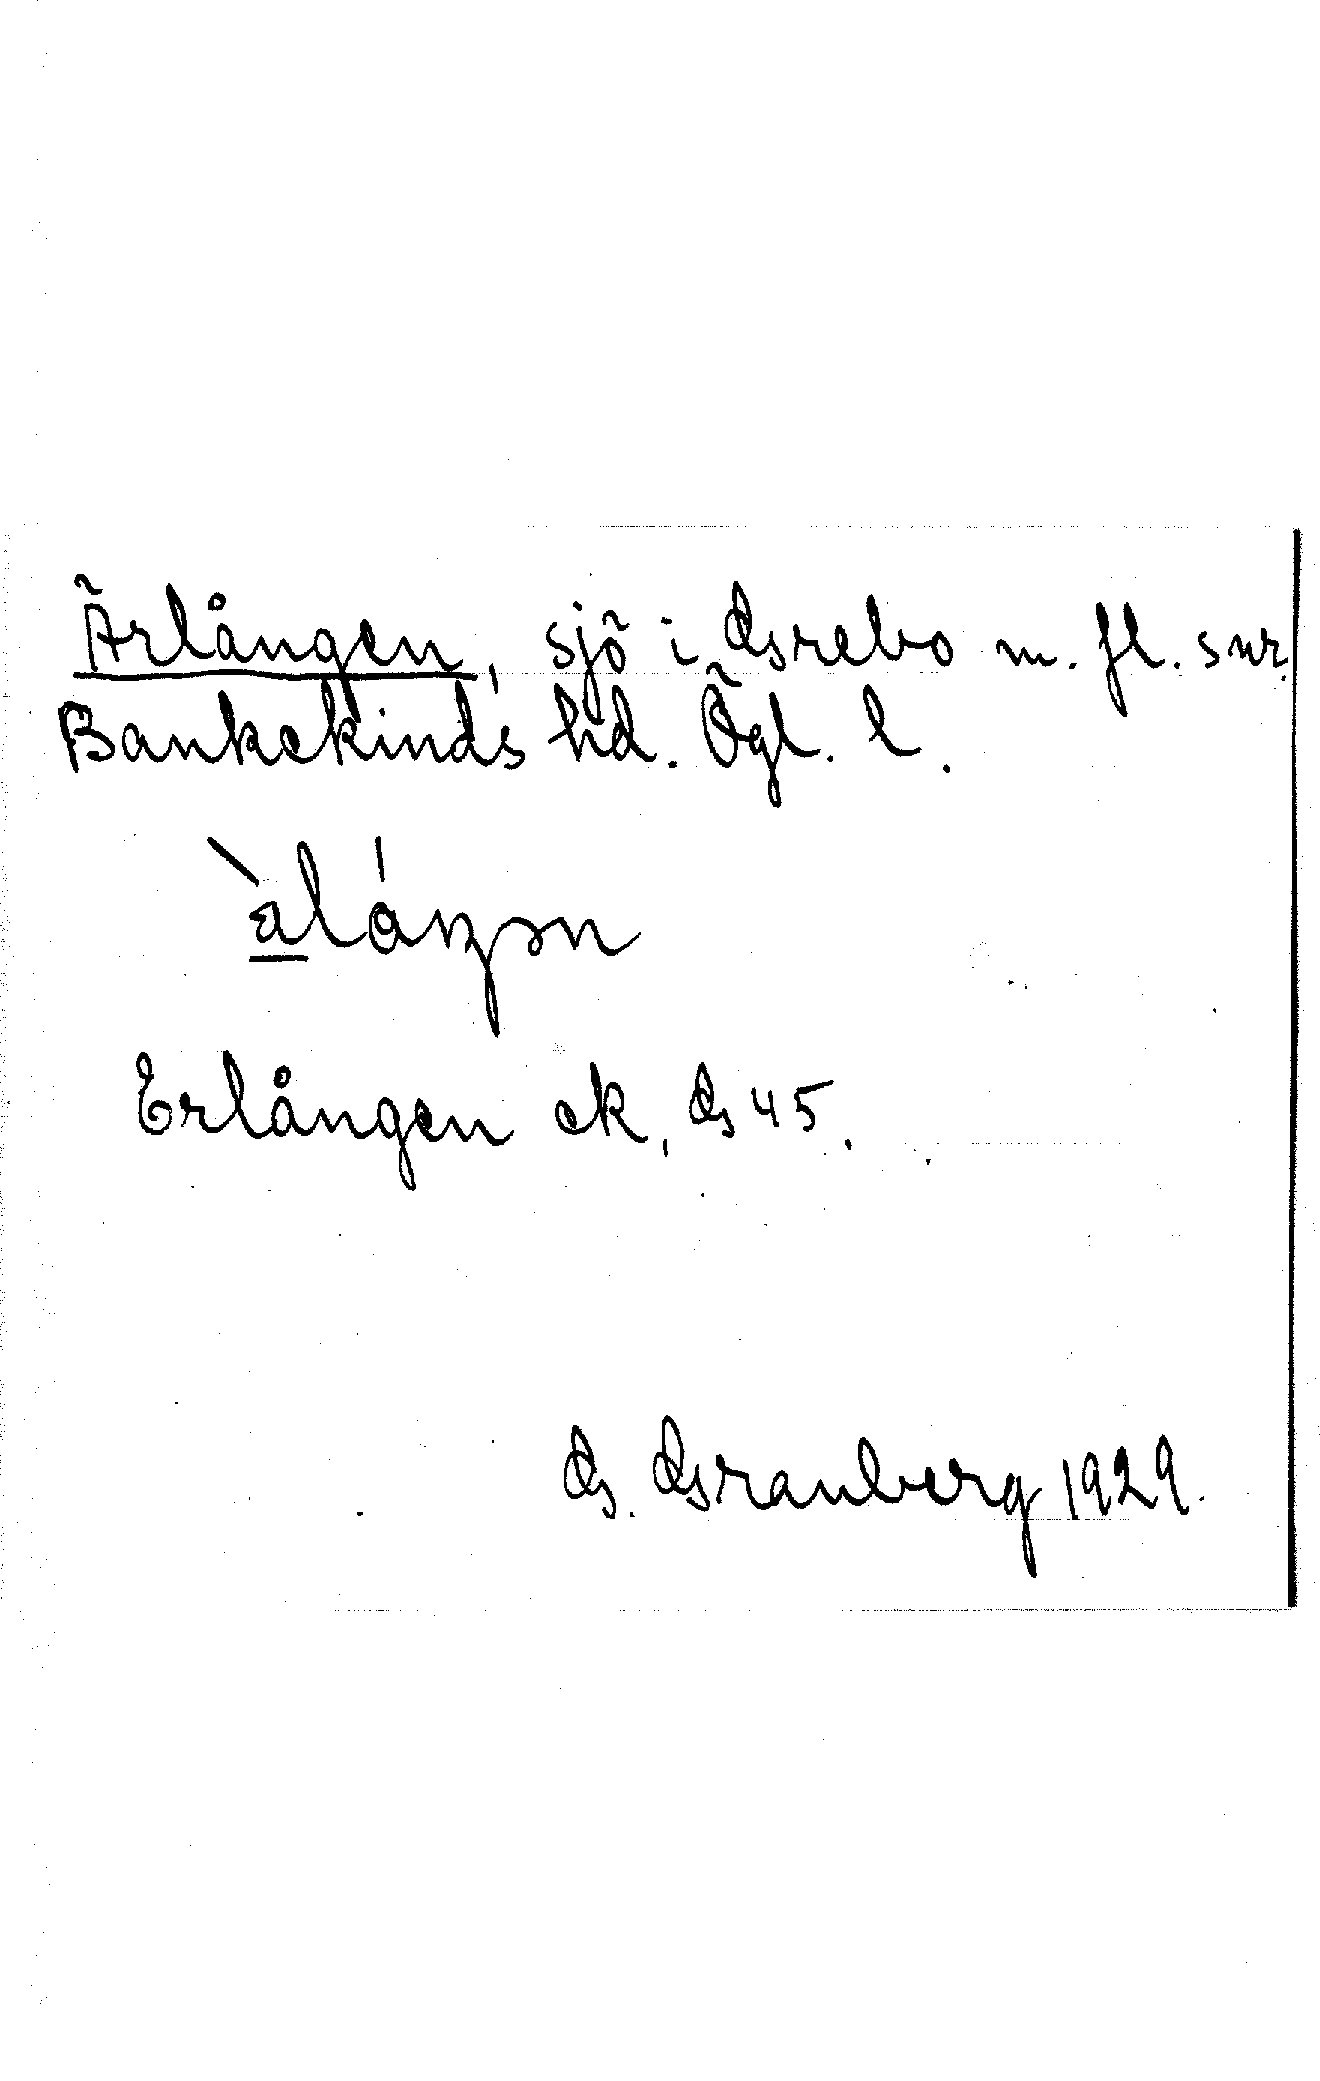 Ärlången, sjö i Grebo m. fl. snr.
Bankekinds hd. Ögl. l.
Erlången ek, G 45.
G. Granberg 1929.